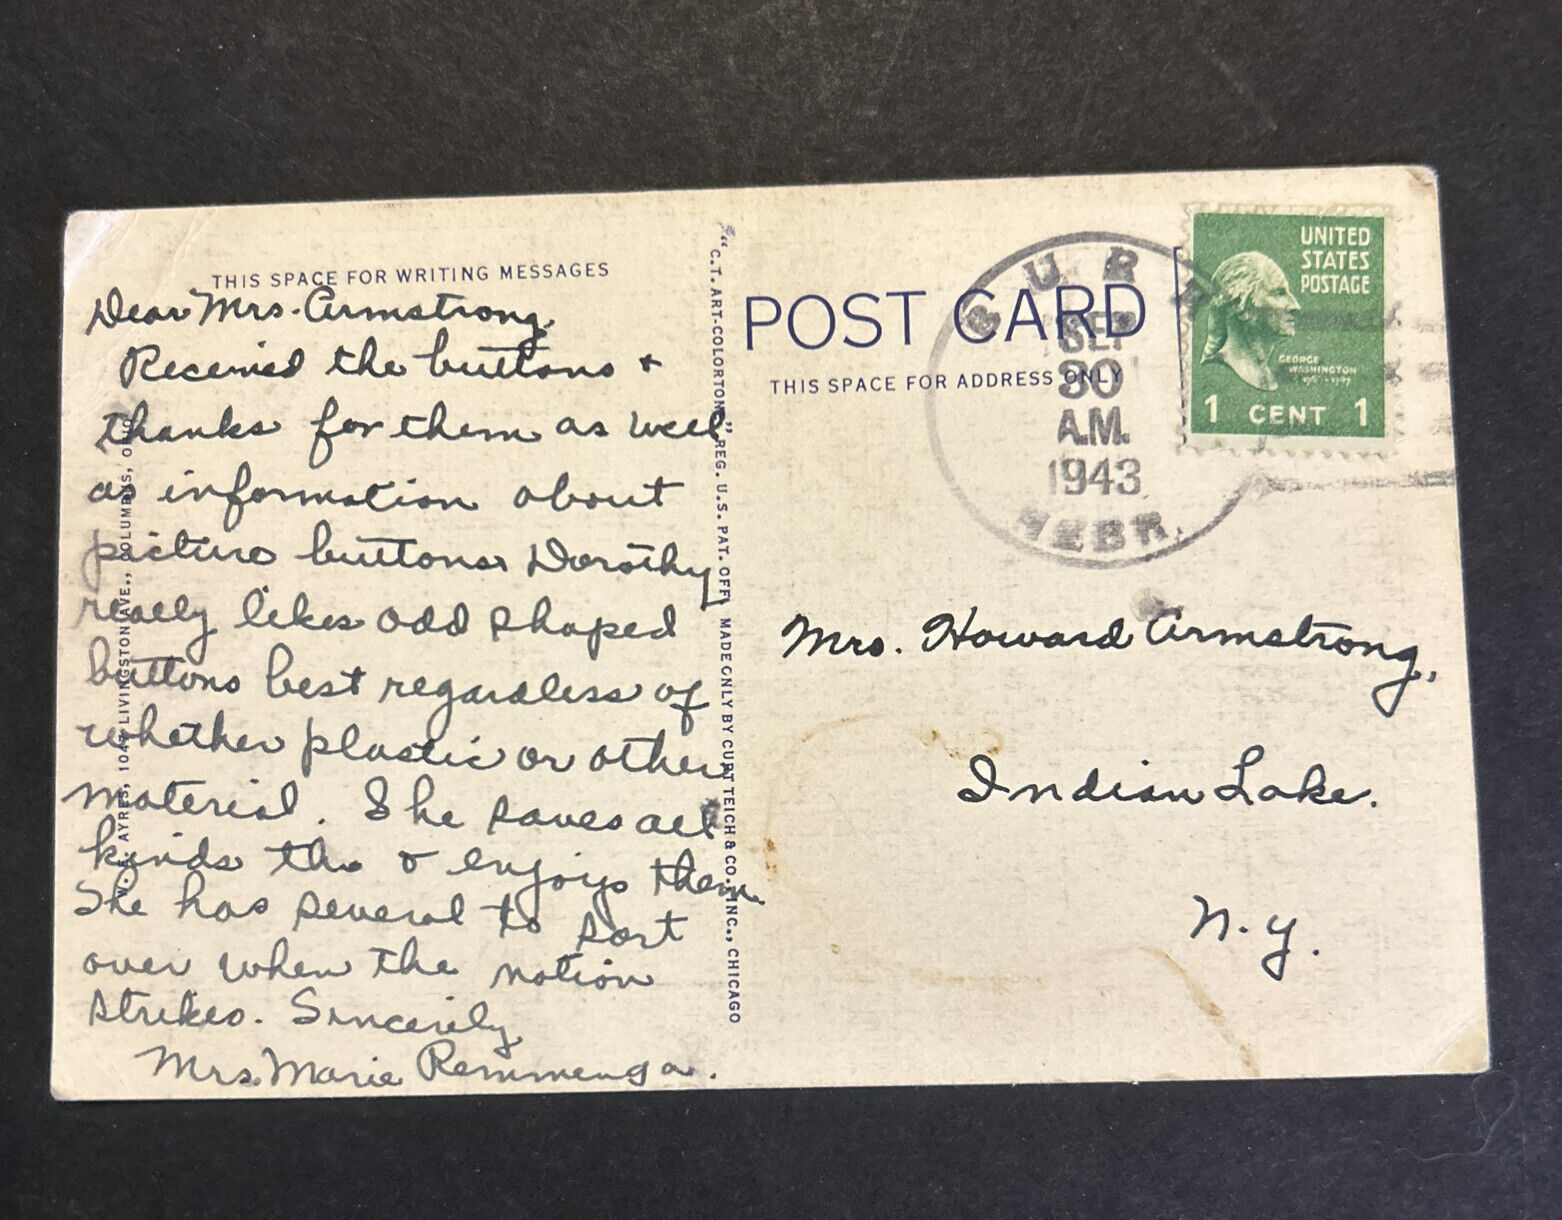 THIS SPACE FOR WRITING MESSAGES
Dear Mrs. Armstrong,
Received the buttons +
thanks for them as well
as information about
picture buttons. Dorothy
really likes odd shaped
buttons best regardless of
whether plastic or other
material. She saves all
kinds tho & enjoys them.
She has several to sort
over when the notion
strikes. Sincerely
Mrs. Marie Remmenga.
AYRES, LIVINGSTON AVE., COLUMBUS, OHIO
"C.T. ART-COLORTONE" REG. U.S. PAT. OFF. MADE ONLY BY CURT TEICH & CO., INC., CHICAGO
POST CARD
THIS SPACE FOR ADDRESS ONLY
BURR
SEP
30
A.M.
1943
NEBR.
UNITED
STATES
POSTAGE
GEORGE
WASHINGTON
1 CENT 1
Mrs. Howard Armstrong,
Indian Lake.
N.Y.